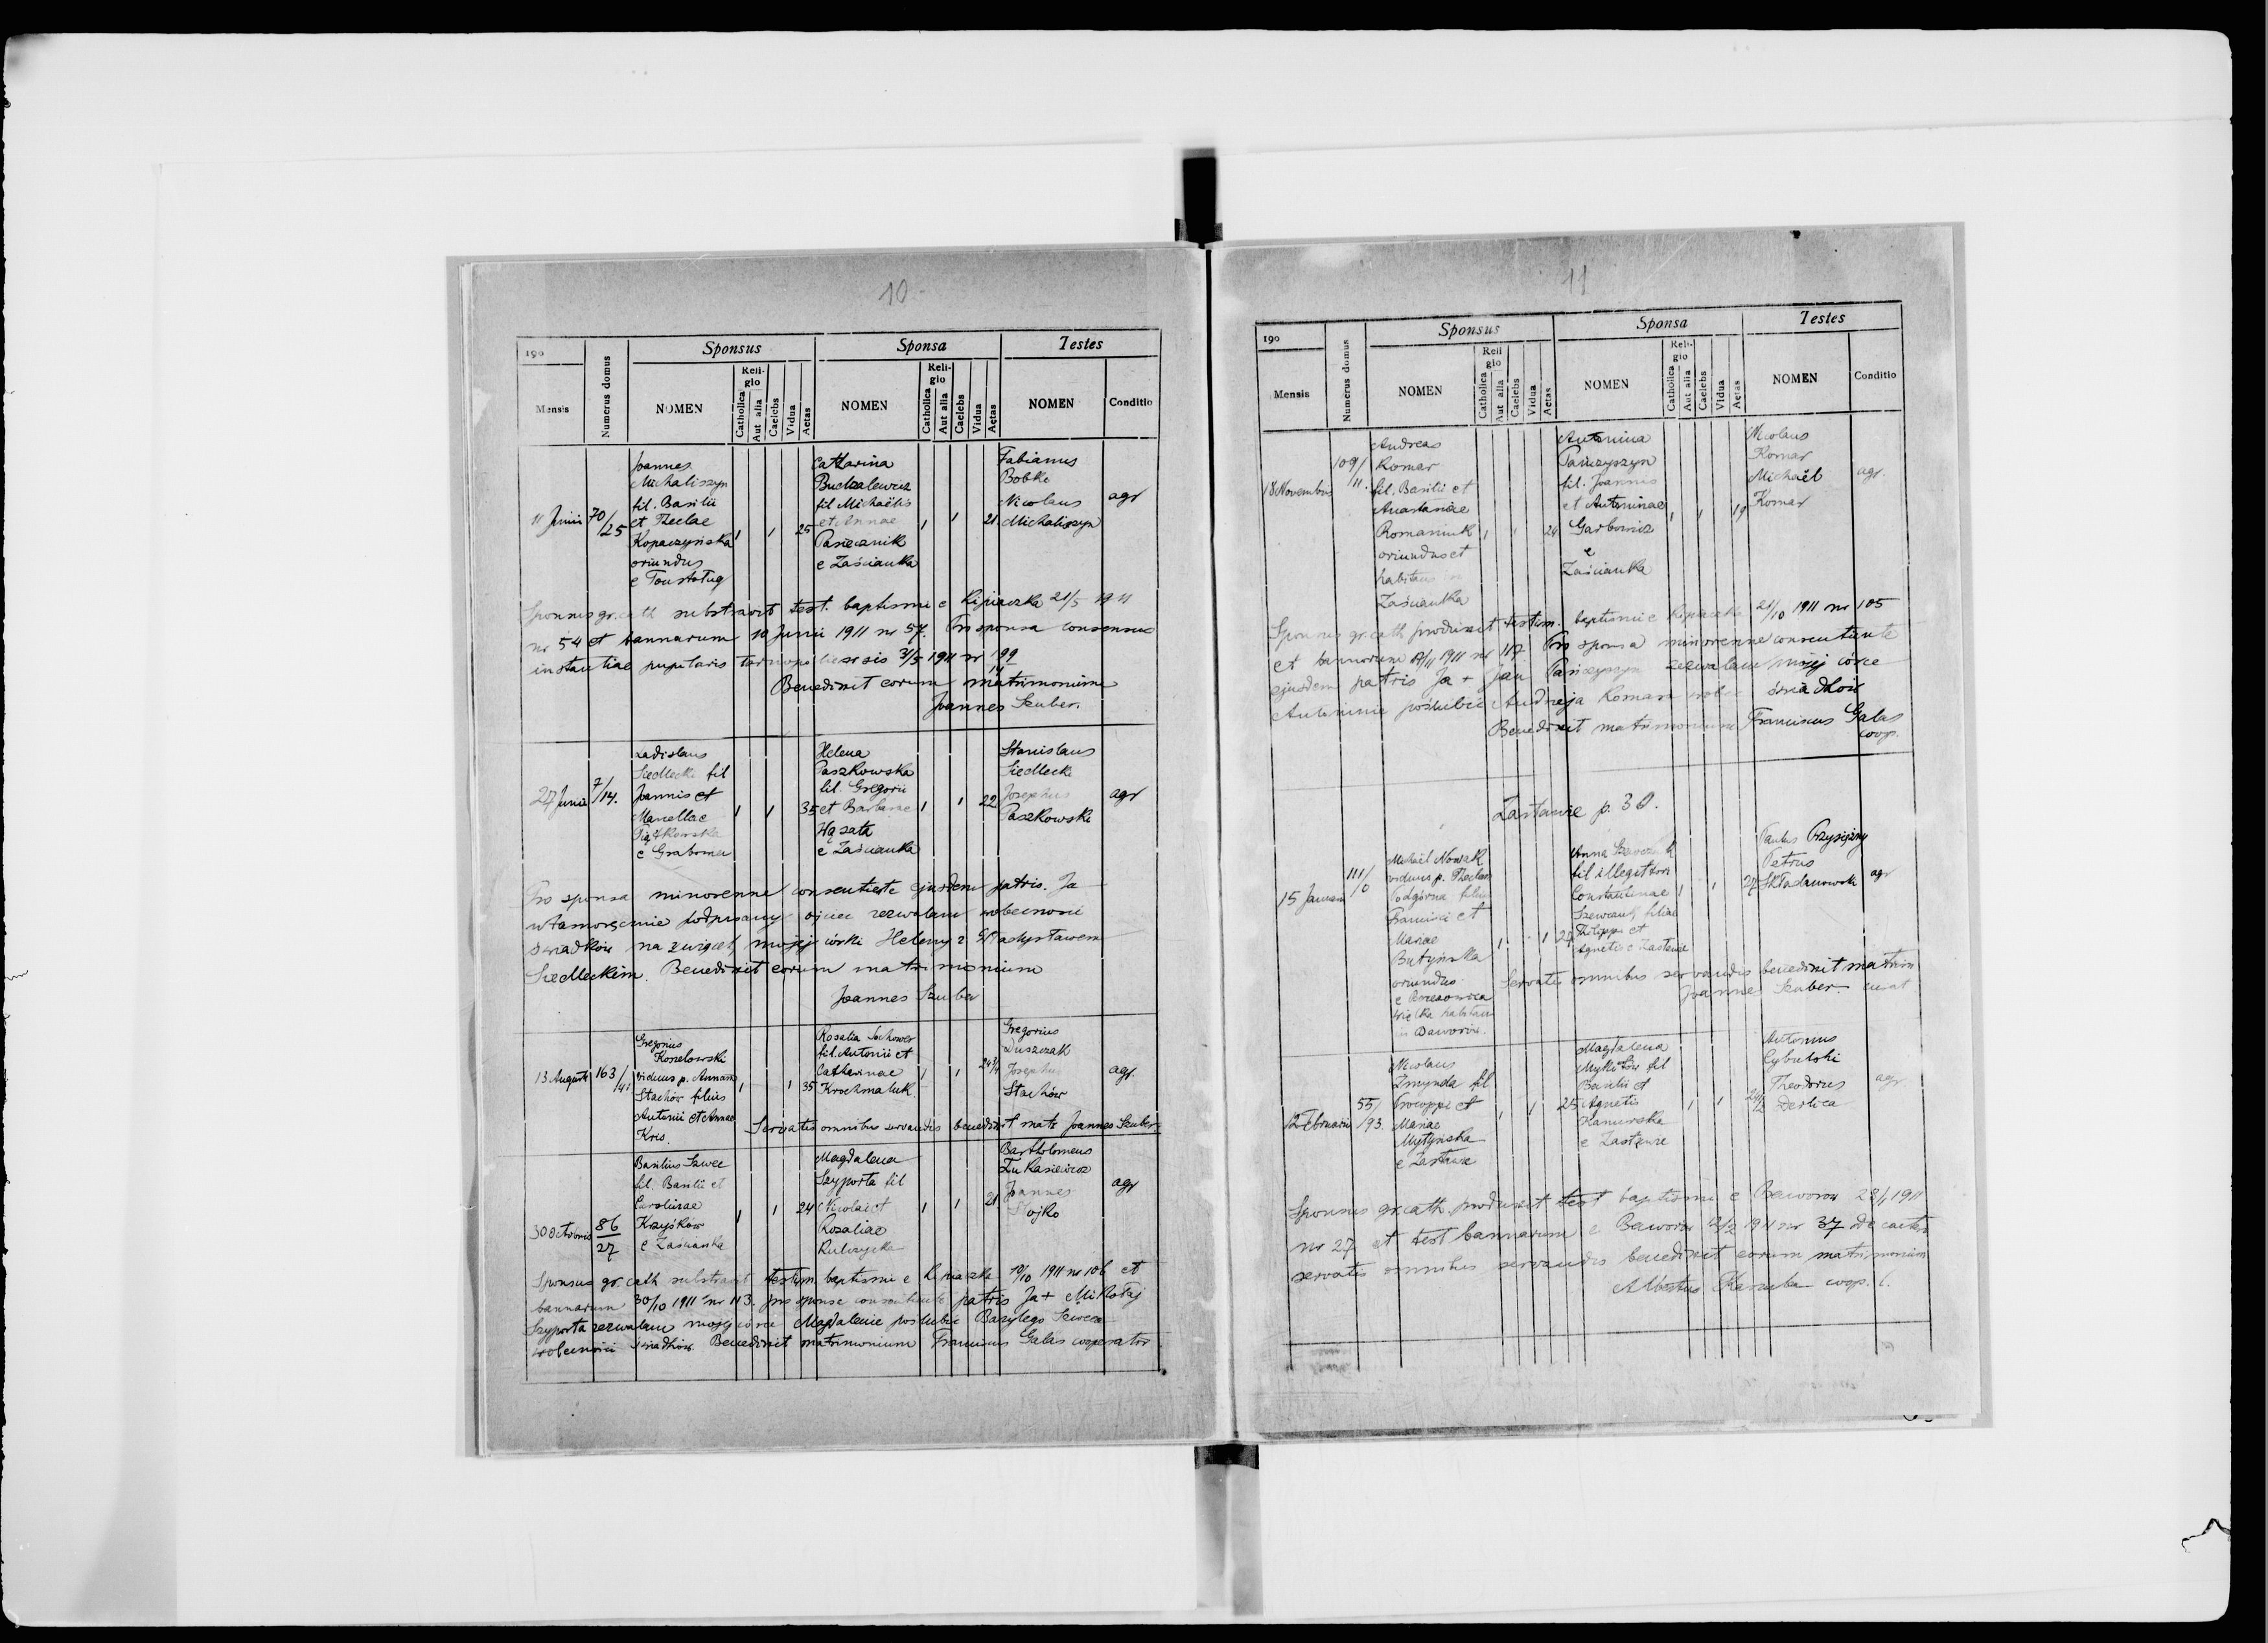 10
190
Mensis
Numerus domus
Sponsus
NOMEN
Reli-
gio
Catholica
Aut alia
Caelebs
Vidua
Aetas
Sponsa
NOMEN
Reli-
gio
Catholica
Aut alia
Caelebs
Vidua
Aetas
Testes
NOMEN
Conditio
11 Junii
70/25
Joannes
Michaliszyn
fil. Basilii
et Theclae
Kopaczyńska
oriundus
e Toustoług
1
1
25
Catharina
fil Michaëlis
et Annae
Pasiecznik
e Zaścianka
1
1
21
Fabianus
Bobki
Nicolaus
Michaliszyn
agr
Sponsus gr. cath substravit test. baptismi e 21/5 1911
nr 54 et bannarum 10 Junii 1911 nr 57. Pro sponsa consensus
instantiae pupilaris 31/5 1911 nr 199
14
Benedixit eorum matrimonium
Joannes Szuber.
27 Junii
7/14.
Ladislaus
Siedlecki fil
Joannis et
Marcellae
Piątkowska
e
1
1
35
Helena
Paszkowska
fil. Gregorii
et Barbarae
e Zaścianka
1
1
22
Stanislaus
Siedlecki
Josephus
Paszkowski
agr
Pro sponsa minorenne consentiente ejusdem patris. Ja
własnoręcznie podpisany ojciec zezwalam wobecności
świadków na związek mojej córki Heleny z Władysławem
Siedleckim. Benedixit eorum matrimonium
Joannes Szuber
13 Augusti
163/41
Gregorius
viduus p. Annam
Stachów filius
Antonii et Annae
Kris.
1
1
35
Rosalia
fil. Antonii et
Catharinae
Krochmaluk.
1
1
24 3/4
Gregorius
Duszczak
Josephus
Stachów
agr.
Servatis omnibus servandis benedixit matr Joannes Szuber
30 Octobris
86
27
Basilius Szwec
fil. Basilii et
Carolinae
Krzyśków
e Zaścianka
1
1
24
Magdalena
Szyporta fil
Nicolai et
Rozaliae
1
1
21
Bartholomeus
Łukasiewicz
Joannes
agr
Sponsus gr. cath substravit testim. baptismi e 19/10 1911 nr 106 et
bannarum 30/10 1911 nr 113. pro sponsa consentiente patris Ja + Mikołaj
Szyporta zezwalam mojej córce Magdalenie poślubić Bazylego Szweca
wobecności świadków. Benedixit matrimonium Franciscus Galas cooperator
11
190
Mensis
Numerus domus
Sponsus
NOMEN
Reli
gio
Catholica
Aut alia
Caelebs
Vidua
Aetas
Sponsa
NOMEN
Reli-
gio
Catholica
Aut alia
Caelebs
Vidua
Aetas
Testes
NOMEN
Conditio
18 Novembris
109/11.
Andreas
Komar
fil. Basilii et
Anastasiae
Romaniuk
oriundus et
habitans in
Zaścianka
1
1
24
Antonina
Pańczyszyn
fil. Joannis
et Antoninae
e
Zaścianka
1
1
19
Nicolaus
Komar
Michaël
Komar
agr.
Sponsus gr. cath produxit testim. baptismi e 21/10 1911 nr 105
et bannorum 1911 nr 117. Pro sponsa minorenne consentiente
ejusdem patris Ja + Jan Pańczyszyn zezwalam mojej córce
Antoninie poślubić Andreja Komara świadków
Benedixit matrimonium Franciscus Galas
coop.
Zastawie p. 30.
15 Januarii
111/0
Michaël Nowak
viduus p. Theclam
Podgórna filius
Francisci et
Mariae
oriundus
e
habitans
in Baworów.
1
1
Anna
fil illegit tori
Constantinae
filiae
Philippi et
Agnetis e Zastawie
1
1
27
Paulus Przysiężny
Petrus
Składanowski
agr
Servatis omnibus servandis benedixit matrim
Joannes Szuber. curat.
12 Februarii
55/93.
Nicolaus
Zmynda fil
Procoppi et
Mariae
e Zastawie
1
1
25
Magdalena
fil
Basilii et
Agnetis
e Zastawie
1
1
Antonius
Cybulski
Theodorus
Derlica
agr.
Sponsus gr. cath. produxit test baptismi e Baworów 28/1 1911
nr 27 et test bannarum e Baworów 12/2 1911 nr 37 de caetero
servatis omnibus servandis benedixit eorum matrimonium
Albertus coop. l.